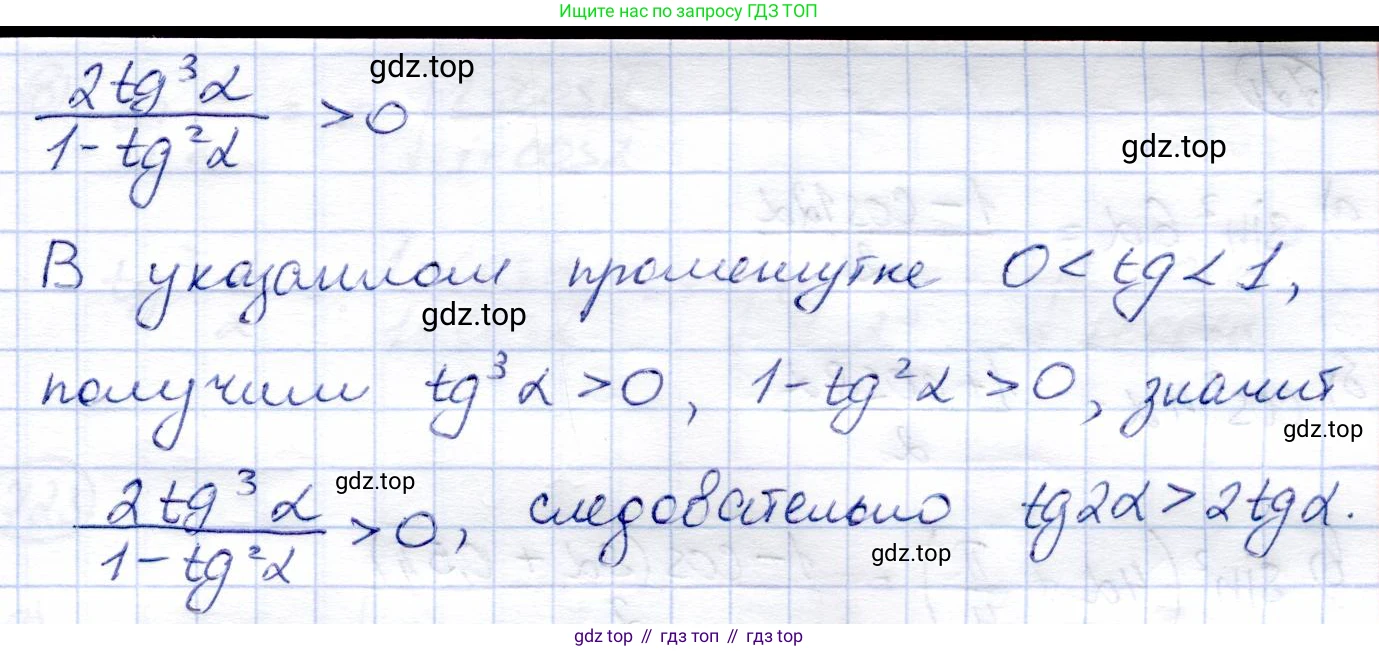 Ищите нас по запросу ГДЗ ТОП
2tg³α / 1-tg²α > 0
gdz.top
gdz.top
В указанном промежутке 0 < tg < 1,
gdz.top
получим tg³α > 0, 1-tg²α > 0, значит
gdz.top
2tg³α / 1-tg²α > 0, следовательно tg2α > 2tgα.
gdz.top
gdz.top
gdz top // гдз топ // gdz top